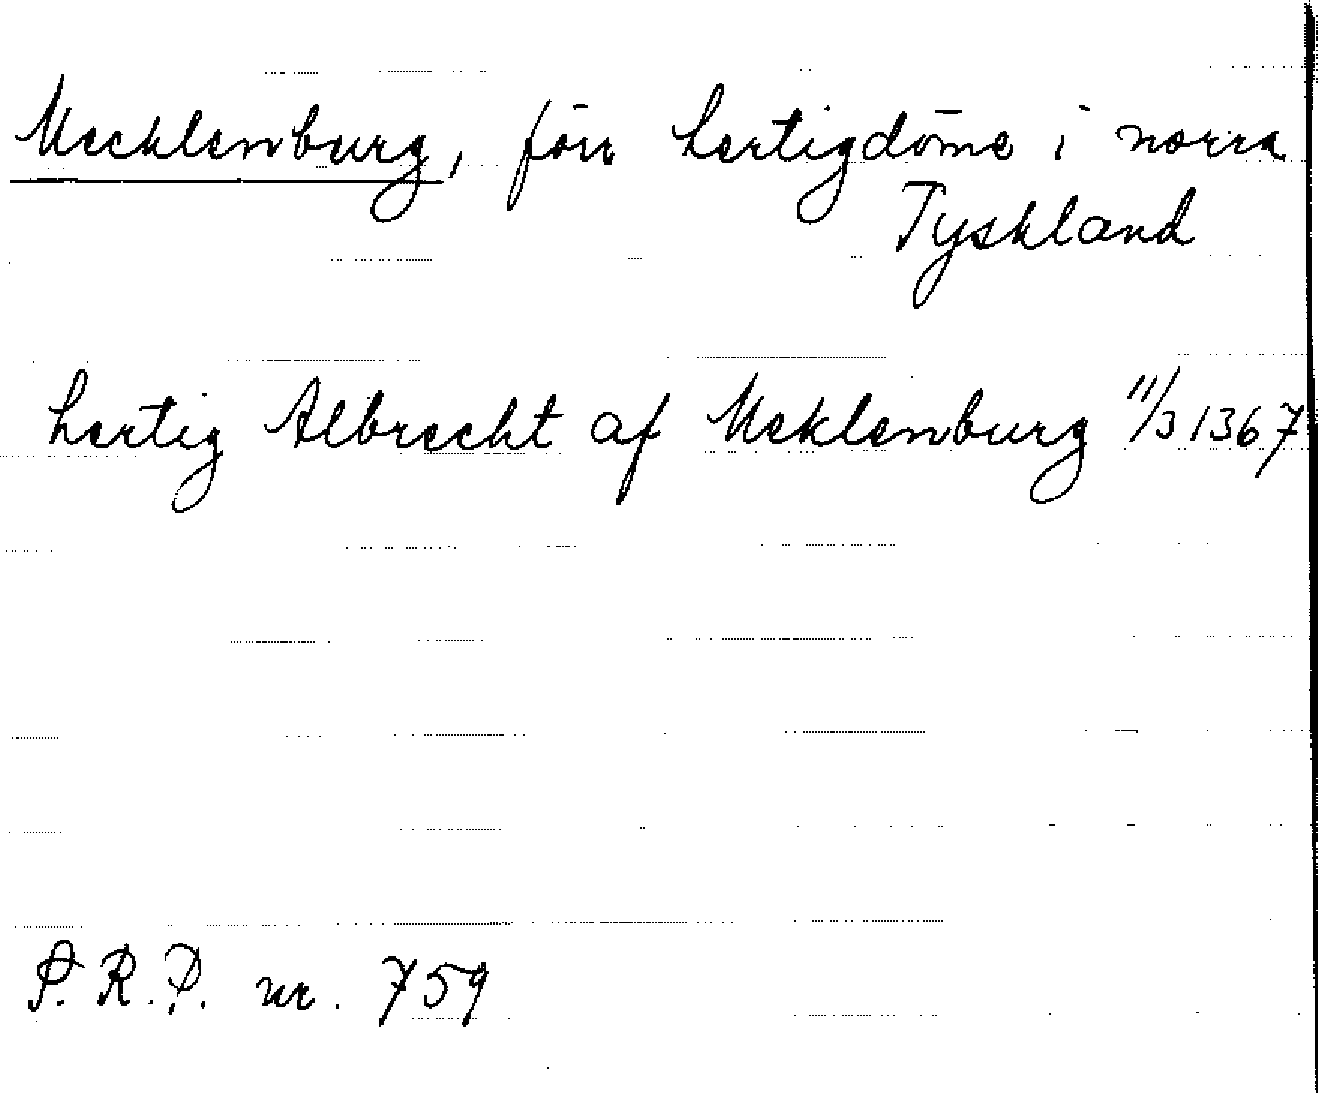 Mecklenburg, förr hertigdöme i norra
Tyskland
hertig Albrecht af Meklenburg 11/3 1367
S.R.P. nr. 759